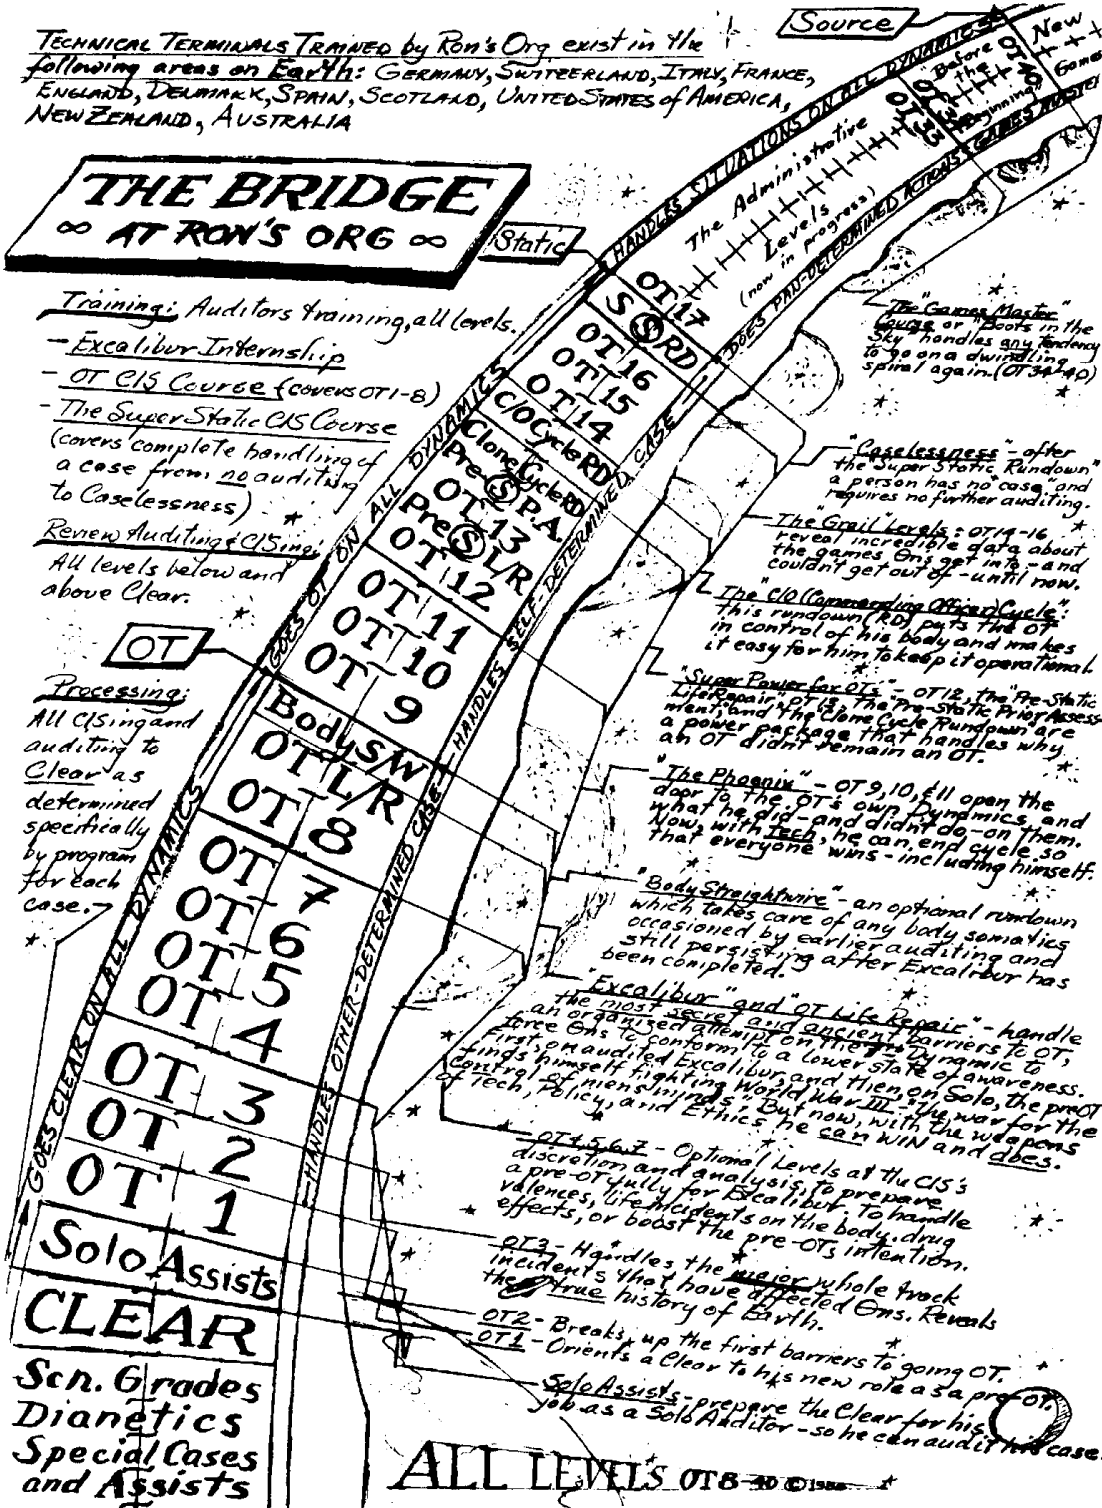 Source
TECHNICAL TERMINALS TRAINED by Ron's Org exist in the
following areas on Earth: GERMANY, SWITZERLAND, ITALY, FRANCE,
ENGLAND, DENMARK, SPAIN, SCOTLAND, UNITED STATES of AMERICA,
NEW ZEALAND, AUSTRALIA
THE BRIDGE
∞ AT RON'S ORG ∞
Static
Training: Auditors training, all levels.
- Excalibur Internship
- OT C/S Course (covers OT1-8)
- The Super Static C/S Course
(covers complete handling of
a case from no auditing
to Caselessness)
Review Auditing & C/Sing:
All levels below and
above Clear.
OT
Processing:
All C/Sing and
auditing to
Clear as
determined
specifically
by program
for each
case.→
New
Games
OT 40
"Before
the
Beginning"
OT 34
OT 33
The Administrative
Levels
(now in progress)
OT 17
S Ⓢ RD
OT 16
OT 15
OT 14
C/O Cycle RD
Clone Cycle RD
Pre-Ⓢ P.A.
OT 13
Pre-Ⓢ L/R
OT 12
OT 11
OT 10
OT 9
Body S/W
OT L/R
OT 8
OT 7
OT 6
OT 5
OT 4
OT 3
OT 2
OT 1
Solo Assists
CLEAR
Scn. Grades
Dianetics
Special Cases
and Assists
GOES CLEAR ON ALL DYNAMICS
GOES OT ON ALL DYNAMICS
HANDLES SITUATIONS ON ALL DYNAMICS
HANDLES OTHER-DETERMINED CASE
HANDLES SELF-DETERMINED CASE
DOES PAN-DETERMINED ACTIONS
GAMES MASTER
The "Games Master"
Course or "Boots in the
Sky" handles any tendency
to go on a dwindling
spiral again. (OT 34-40)
"Caselessness" - after
the "Super Static Rundown"
a person has no "case" and
requires no further auditing.
The "Grail" Levels: OT14-16
reveal incredible data about
the games Θns get into - and
couldn't get out of - until now.
The "C/O (Commanding Officer) Cycle":
this rundown (RD) puts the OT
in control of his body and makes
it easy for him to keep it operational.
"Super Power for OTs" - OT12, the "Pre-Static
Life Repair," OT13, The "Pre-Static Prior Assess-
ment," and the Clone Cycle Rundown are
a power package that handles why
an OT didn't remain an OT.
"The Phoenix" - OT 9, 10, & 11 open the
door to the OT's own Dynamics, and
what he did - and didn't do - on them.
Now, with Tech, he can end cycle so
that everyone wins - including himself.
"Body Streightwire" - an optional rundown
which takes care of any body somatics
occasioned by earlier auditing and
still persisting after Excalibur has
been completed.
"Excalibur" and "OT Life Repair" - handle
the most secret and ancient barriers to OT,
an organized attempt on the 7th Dynamic to
force Θns to conform to a lower state of awareness.
First on audited Excalibur, and then, on Solo, the preOT
finds himself fighting World War III - "the war for the
control of men's minds". But now, with the weapons
of Tech, Policy, and Ethics he can WIN and does.
OT4,5,6,7 - Optional Levels at the C/S's
discretion and analysis, to prepare
a pre-OT fully for Excalibur. To handle
valences, life incidents on the body, drug
effects, or boost the pre-OTs intention.
OT3 - Handles the major whole track
incidents that have affected Θns. Reveals
the true history of Earth.
OT2 - Breaks up the first barriers to going OT.
OT1 - Orients a Clear to his new role as a pre-OT.
Solo Assists - prepare the Clear for his
job as a Solo Auditor - so he can audit his case.
ALL LEVELS OT8-40 ©